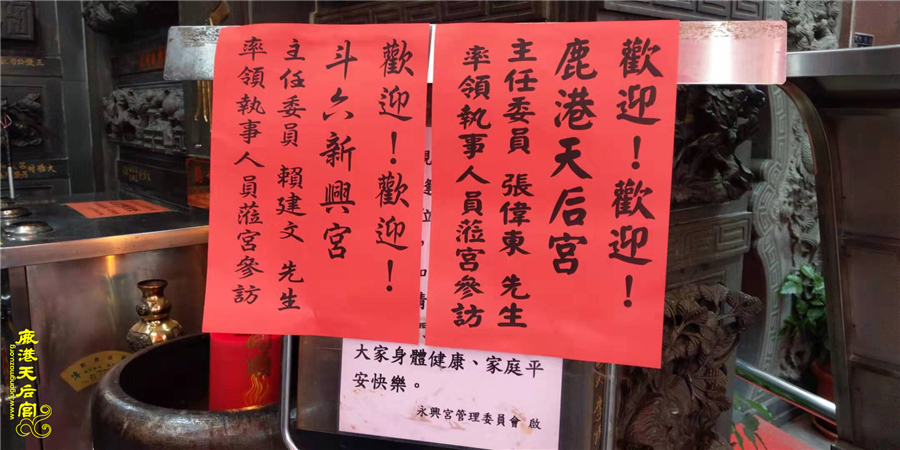 歡迎！歡迎！
鹿港天后宮
主任委員 張偉東 先生
率領執事人員蒞宮參訪
歡迎！歡迎！
斗六新興宮
主任委員 賴建文 先生
率領執事人員蒞宮參訪
大家身體健康、家庭平
安快樂。
永興宮管理委員會 啟
鹿港天后宮
www.lugangmazu.org